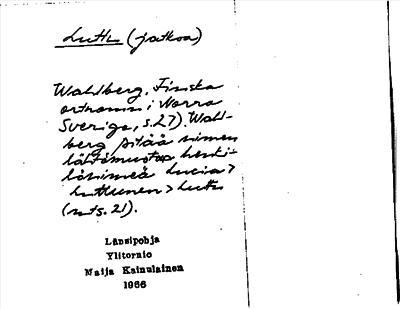 Luttu (jatkoa)
Wahlberg, Finska
ortnamn i Norra
Sverige, s. 27). Wahl-
berg pitää nimen
lähtömuotoa henki-
lönimeä Lucia >
Luttunen > Luttu
(mts. 21).
Länsipohja
Ylitornio
Maija Kainulainen
1966